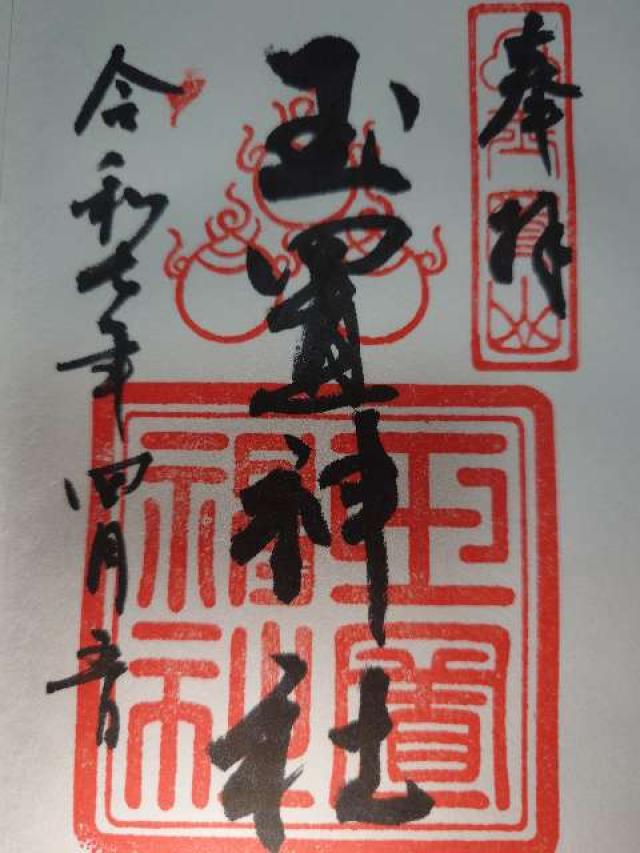 奉拝
玉置神社
令和七年四月六日
玉置神社